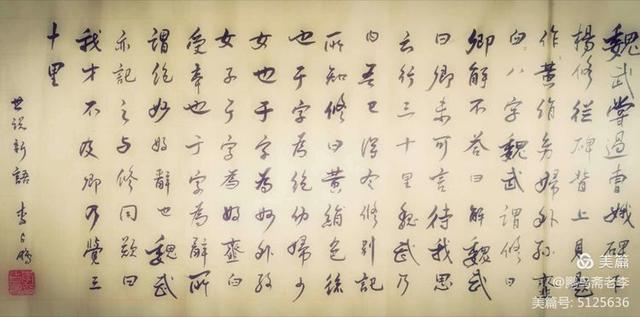 魏武嘗過曹娥碑下
楊修從碑背上見題
作黄絹幼婦外孫齏
臼八字魏武謂修曰
卿解不答曰解魏武
曰卿未可言待我思
之行三十里魏武乃
曰吾已得令修別記
所知修曰黄絹色絲
也于字為絶幼婦少
女也于字為妙外孫
女子于字為好齏臼
受辛也于字為辭所
謂絶妙好辭也魏武
亦記之与修同歎曰
我才不及卿乃覺三
十里
世説新語
美篇
@鹏鸟斋老李
美篇号: 5125636